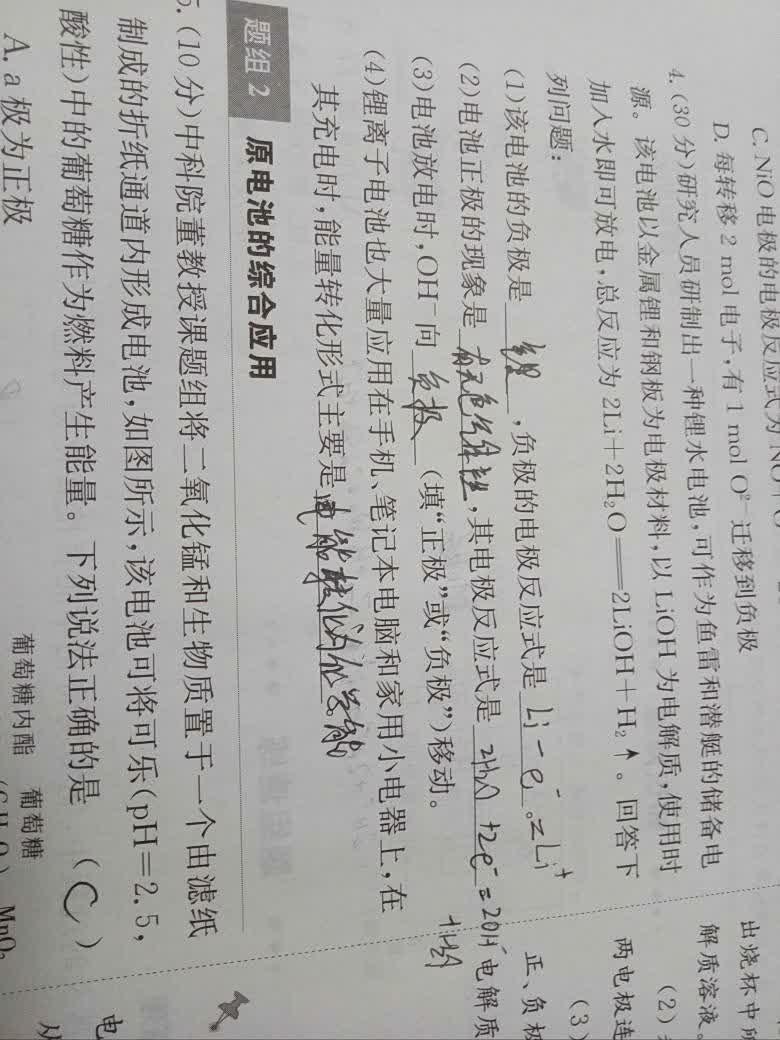 C. NiO 电极的电极反应式为
D. 每转移 2 mol 电子,有 1 mol O²⁻ 迁移到负极
4. (30 分)研究人员研制出一种锂水电池,可作为鱼雷和潜艇的储备电
源。该电池以金属锂和钢板为电极材料,以 LiOH 为电解质,使用时
加入水即可放电,总反应为 2Li+2H₂O══2LiOH+H₂↑。回答下
列问题:
(1)该电池的负极是 锂 ,负极的电极反应式是 Li-e⁻=Li⁺ 。
(2)电池正极的现象是 有无色气体产生 ,其电极反应式是 2H₂O+2e⁻=2OH⁻
+H₂↑
(3)电池放电时,OH⁻向 负极 (填“正极”或“负极”)移动。
(4)锂离子电池也大量应用在手机、笔记本电脑和家用小电器上,在
其充电时,能量转化形式主要是 电能转化为化学能 。
题组 2 原电池的综合应用
5. (10 分)中科院董教授课题组将二氧化锰和生物质置于一个由滤纸
制成的折纸通道内形成电池,如图所示,该电池可将可乐(pH=2.5,
酸性)中的葡萄糖作为燃料产生能量。下列说法正确的是 (C)
A. a 极为正极
葡萄糖内酯 葡萄糖
MnO₂
出烧杯中所
解质溶液。
(2)
两电极连
(3)
正、负极
电解质
电
从